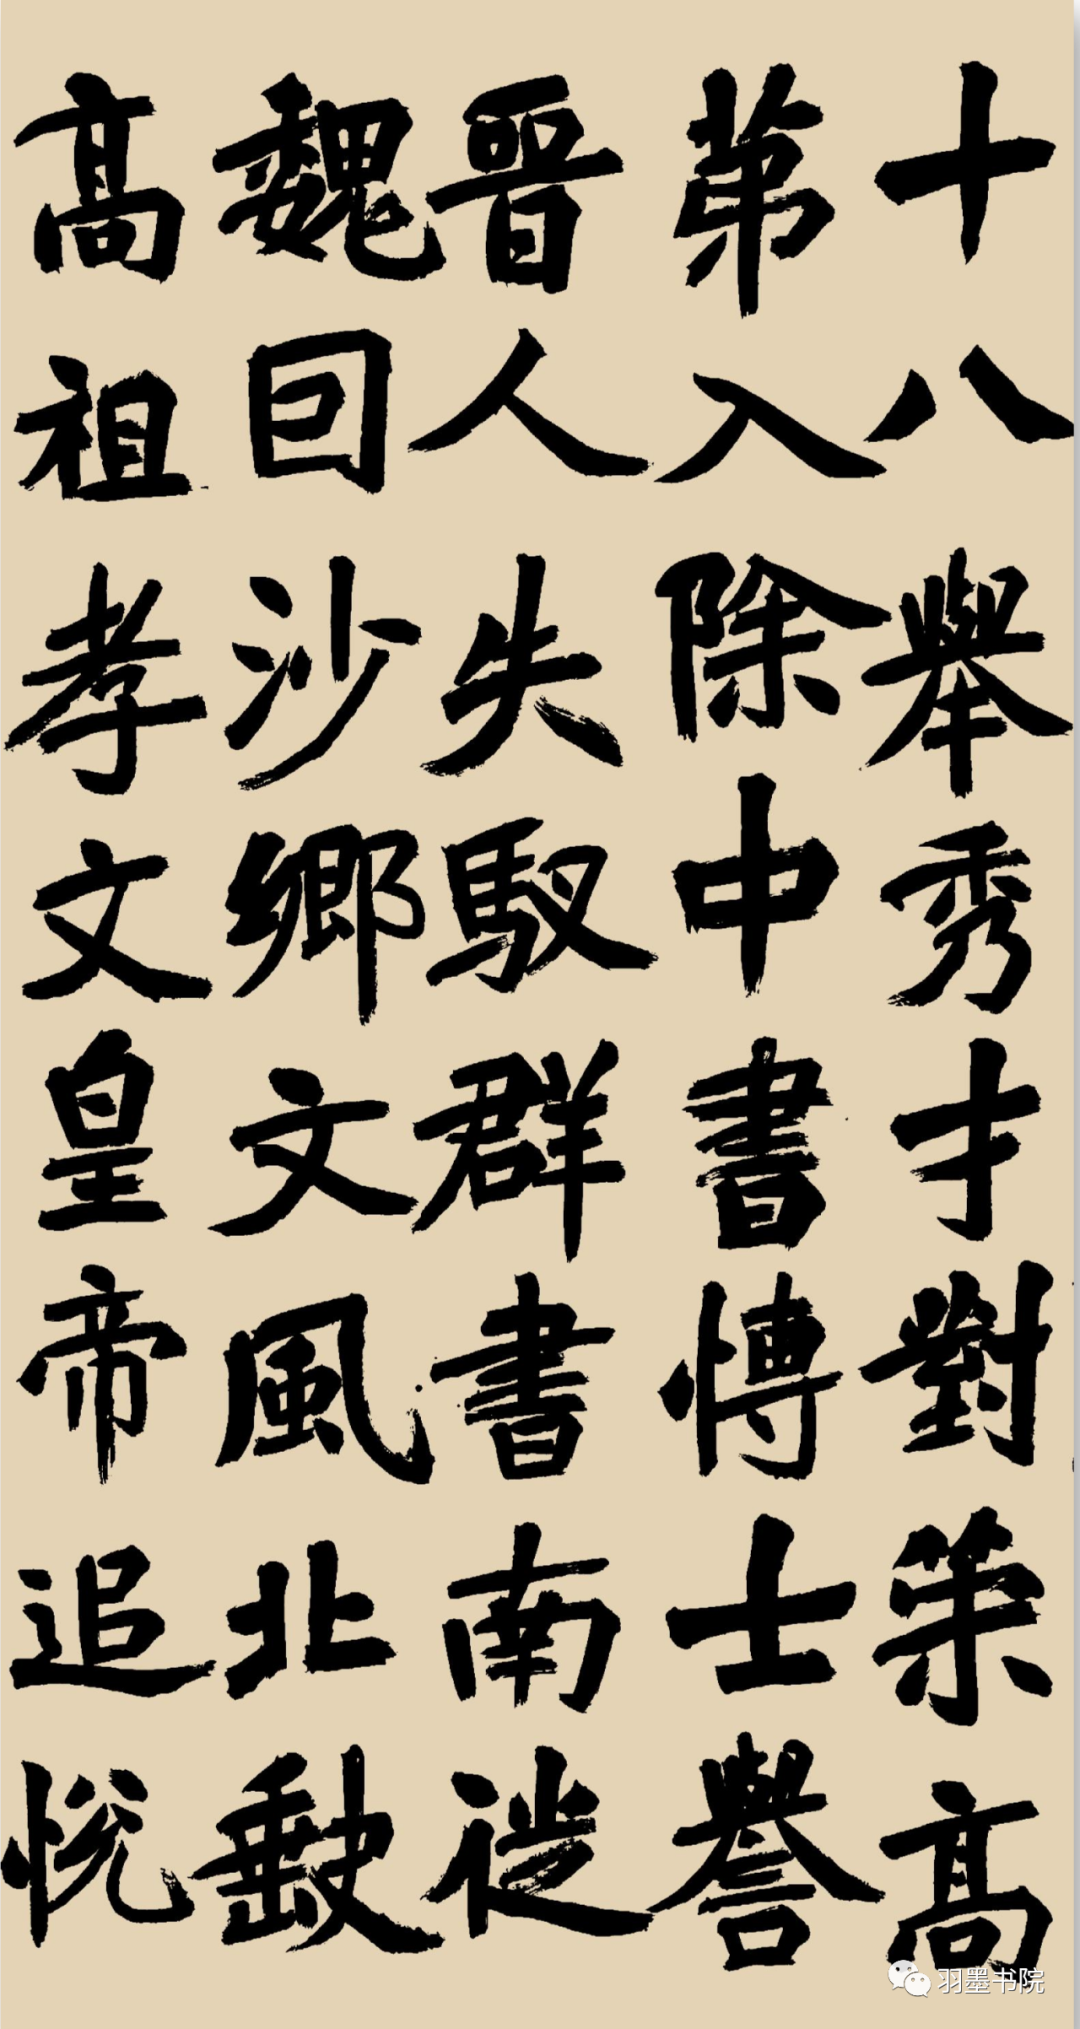 十八舉秀才對策高
第入除中書博士譽
晉人失馭群書南徙
魏因沙鄉文風北
高祖孝文皇帝追悅
羽墨书院